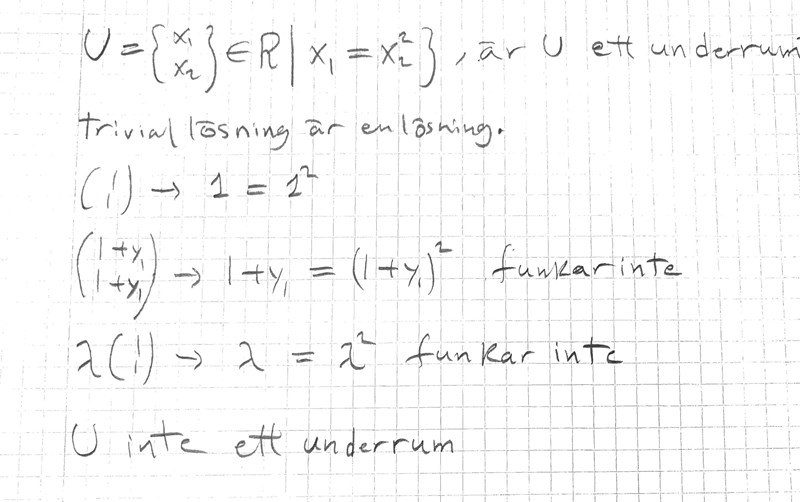 U = {(x₁ x₂) ∈ R | x₁ = x₂²}, är U ett underrum
trivial lösning är en lösning.
(1 1) → 1 = 1²
(1+y₁ 1+y₁) → 1+y₁ = (1+y₁)² funkar inte
λ(1 1) → λ = λ² funkar inte
U inte ett underrum